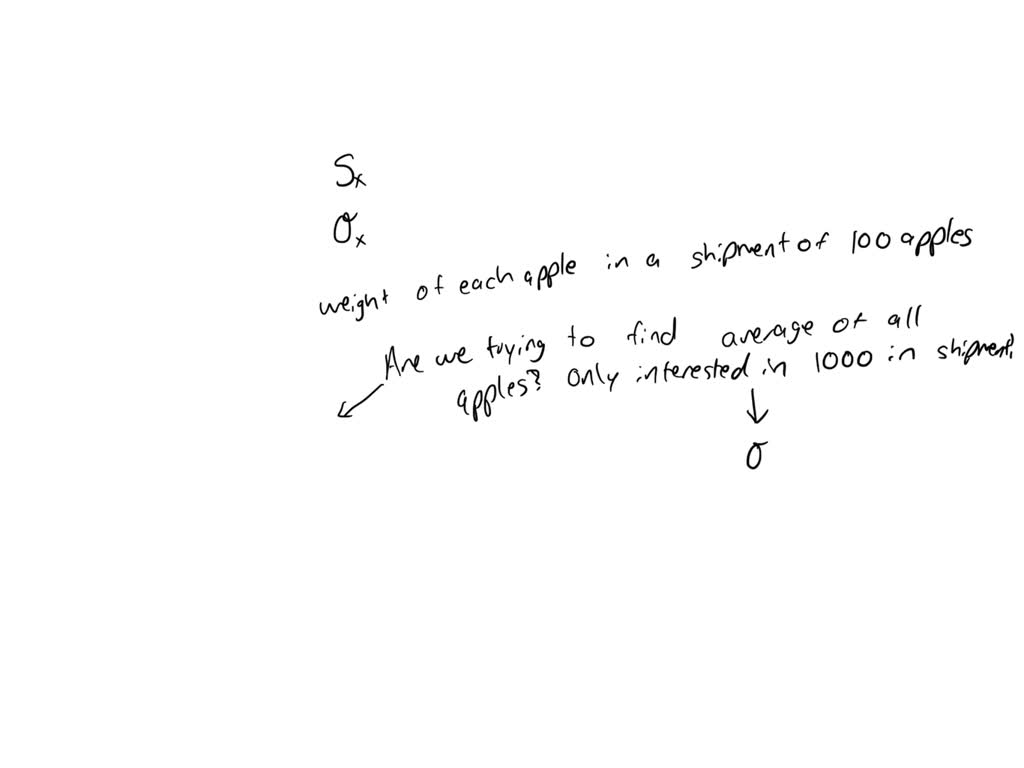 Sx
σx
weight of each apple in a shipment of 100 apples
Are we trying to find average of all
apples? Only interested in 1000 in shipment?
σ